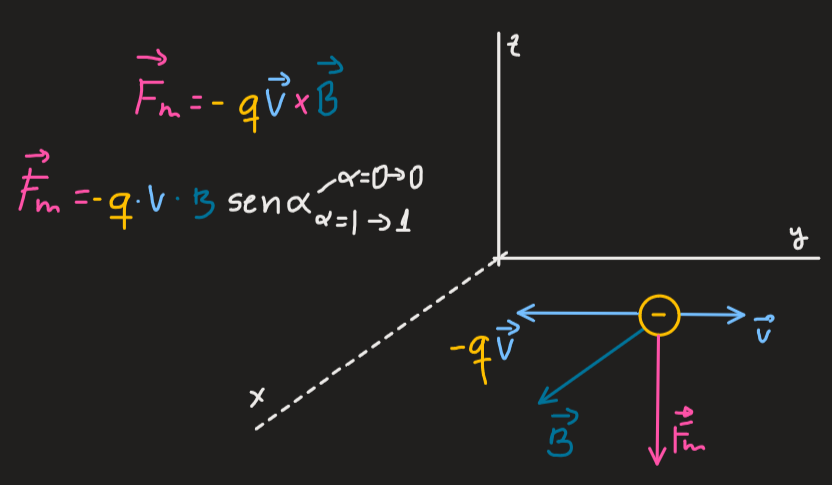 F⃗m = - q v⃗ × B⃗
F⃗m = - q · v · B senα
α=0→0
α=1→1
z
y
x
-
-q v⃗
v⃗
B⃗
F⃗m